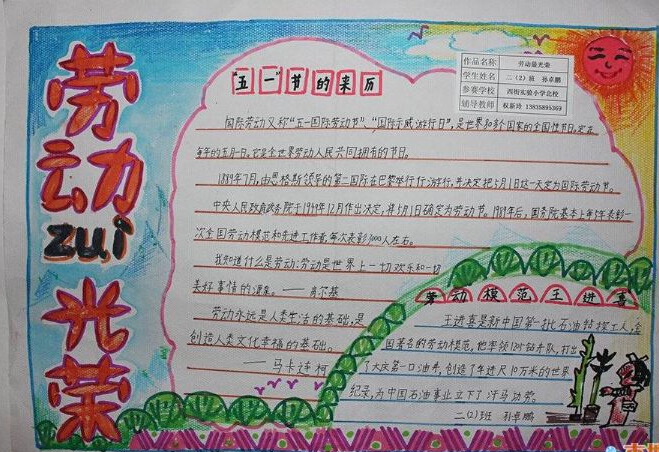 劳动
zui
光荣
"五一"节的来历
作品名称 劳动最光荣
学生姓名 二(2)班 孙卓鹏
参赛学校 西街实验小学北校
辅导教师 权新玲 13835895369
国际劳动又称"五一国际劳动节"、"国际示威游行日",是世界和多个国家的全国性节日。定在
每年的五月一日。它是全世界劳动人民共同拥有的节日。
1889年7月,由恩格斯领导的第二国际在巴黎举行代游行,并决定把5月1日这一天定为国际劳动节。
中央人民政府政务院于1949年12月作出决定,将5月1日确定为劳动节。1989年后,国务院基本上每5年表彰一
次全国劳动模范和先进工作者,每次表彰3000人左右。
我知道什么是劳动:劳动是世界上一切欢乐和一切
美好事情的源泉。——高尔基
劳动永远是人类生活的基础,是
创造人类文化幸福的基础。
——马卡连柯
劳动模范王进喜
王进喜是新中国第一批石油钻探工人,全
国著名的劳动模范,他率领1205钻井队,打出
了大庆第一口油井,创造了年进尺10万米的世界
纪录,为中国石油事业立下了汗马功劳。
二(2)班 孙卓鹏